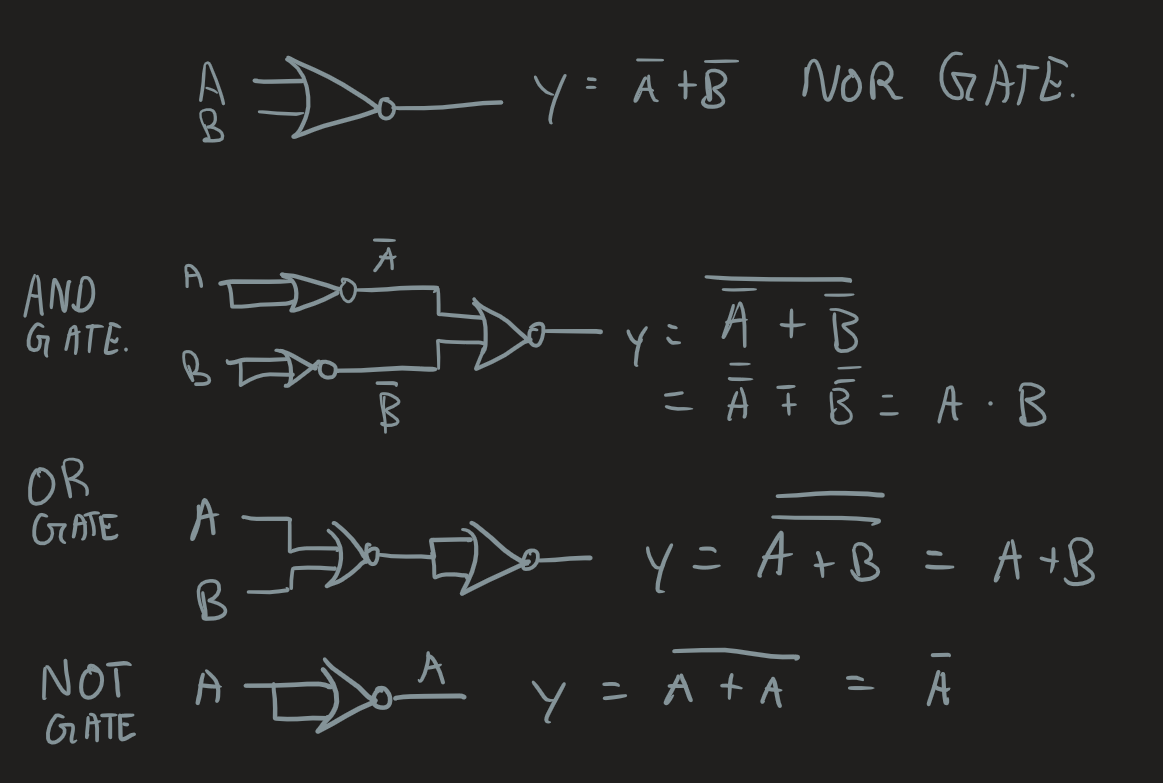 A
B
Y = A̅ + B̅ NOR GATE.
AND
GATE.
A
A̅
B
B̅
Y = \overline{A̅ + B̅}
= A̿ ∓ B̿ = A · B
OR
GATE
A
B
Y = \overline{\overline{A + B}} = A + B
NOT
GATE
A
A
Y = \overline{A + A} = A̅